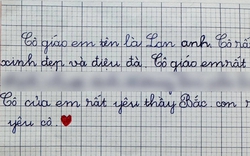 Cô giáo em tên là Lan anh. Cô rất
xinh đẹp và diêu đà. Cô giáo em rất
Cô của em rất yêu thầy Bắc con r
yêu cô ❤